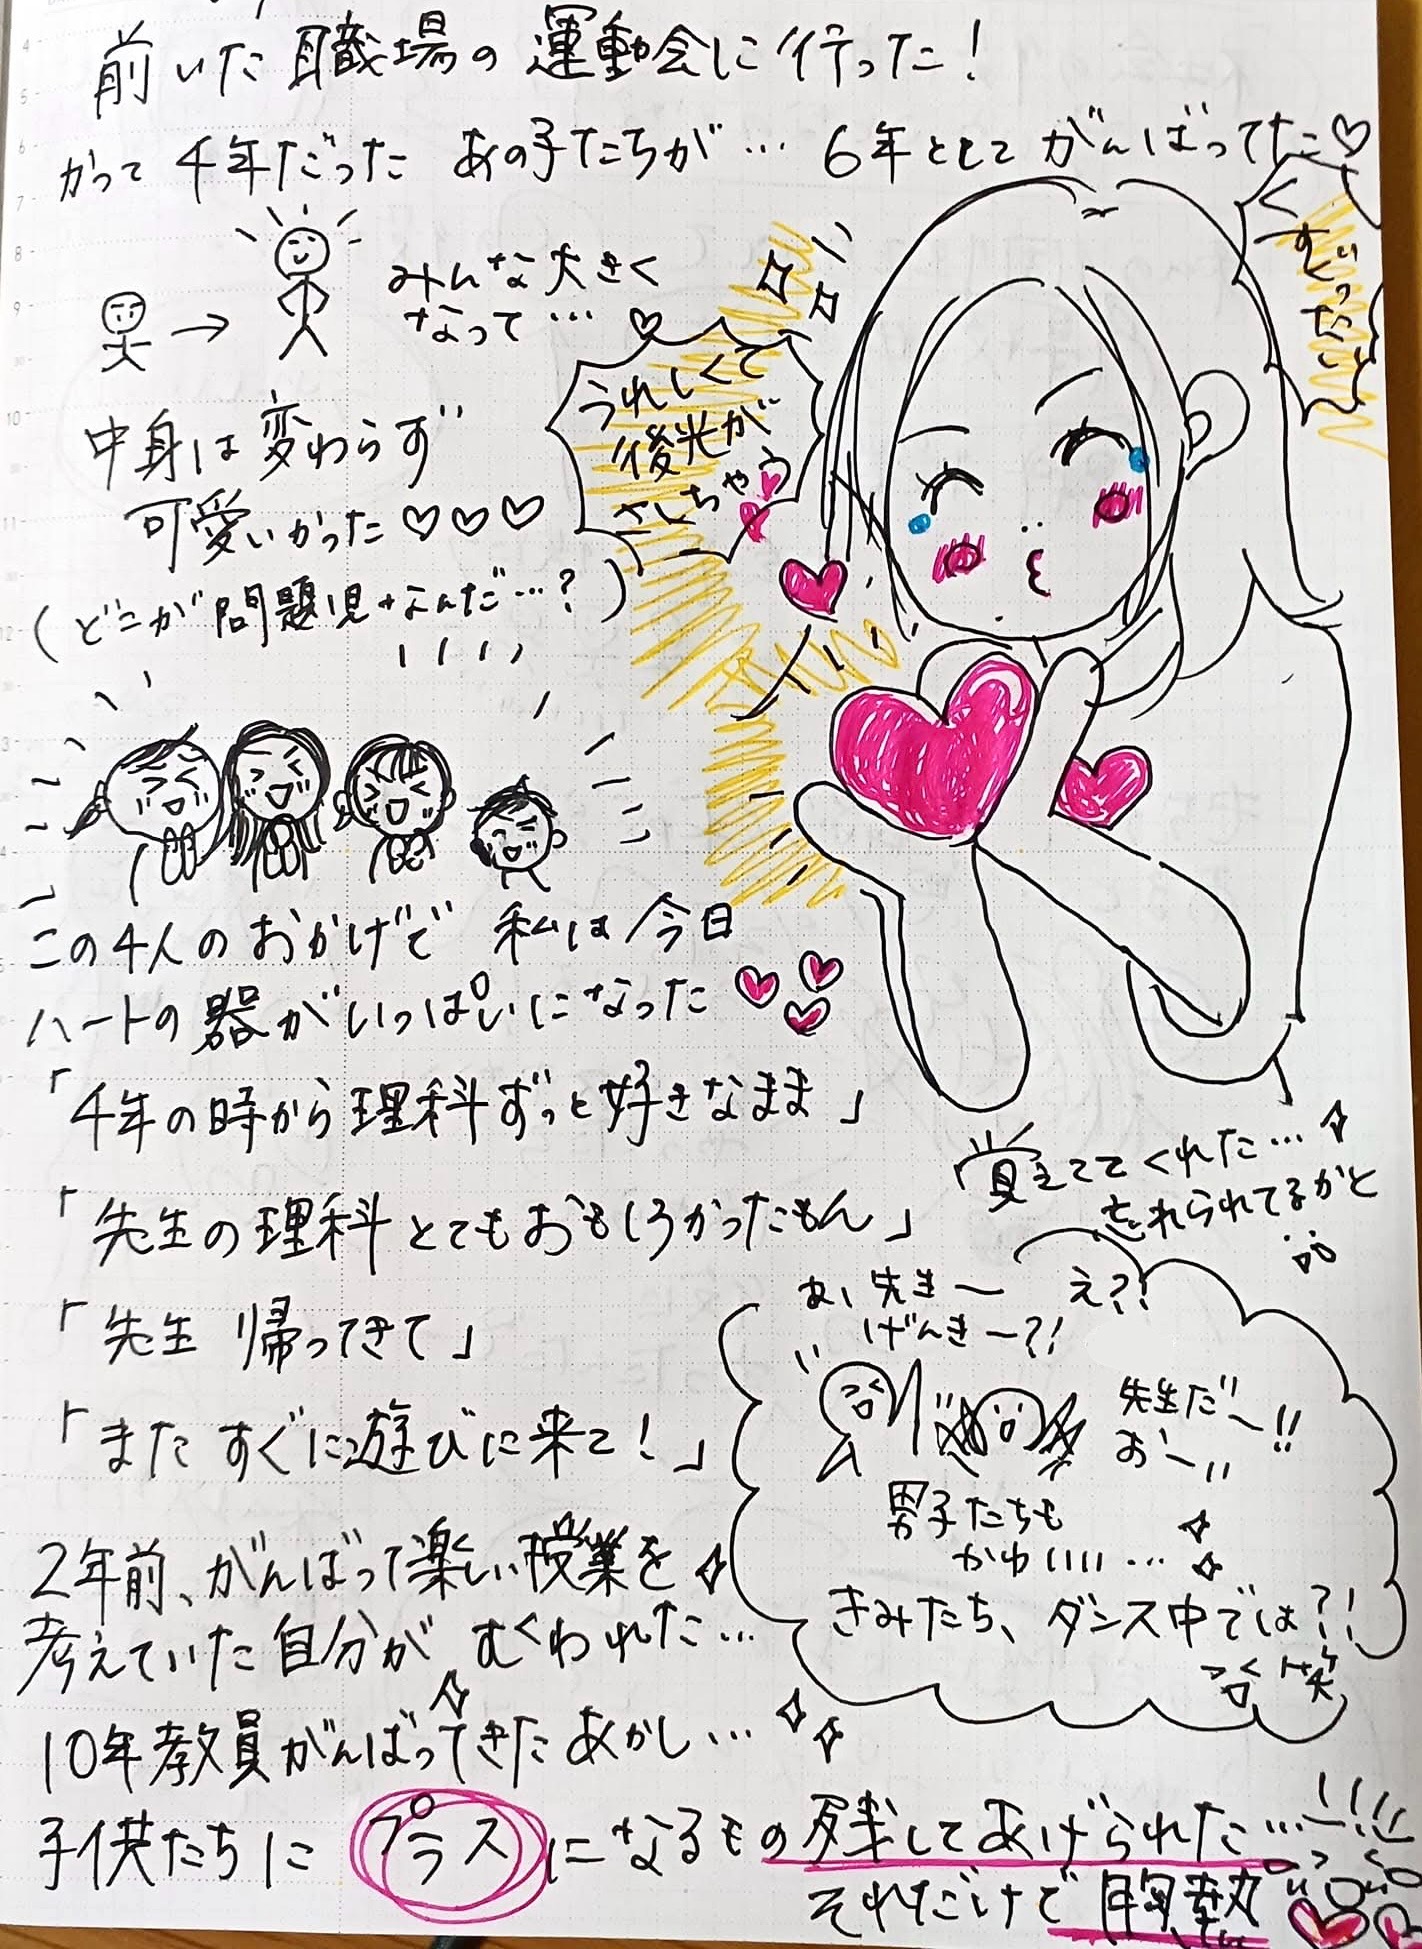 前いた職場の運動会に行った！
かつて4年だったあの子たちが…6年としてがんばってた♡
みんな大きく
なって…♡
うれしくて
後光が
さしちゃう
中身は変わらず
可愛いかった♡♡♡
（どこが問題児なんだ…？）
この4人のおかげで 私は今日
ハートの器がいっぱいになった
「4年の時から理科ずっと好きなまま」
覚えててくれた…
忘れられてるかと
「先生の理科とてもおもしろかったもん」
「先生 帰ってきて」
「またすぐに遊びに来て！」
お、先生〜
げんきー？！
え？！
先生だー！！
おーい
男子たちも
かわいいい…
きみたち、ダンス中では？！
笑
2年前、がんばって楽しい授業を
考えていた自分が むくわれた…
10年教員がんばってきたあかし…
子供たちにプラスになるもの残してあげられた…
それだけで胸熱